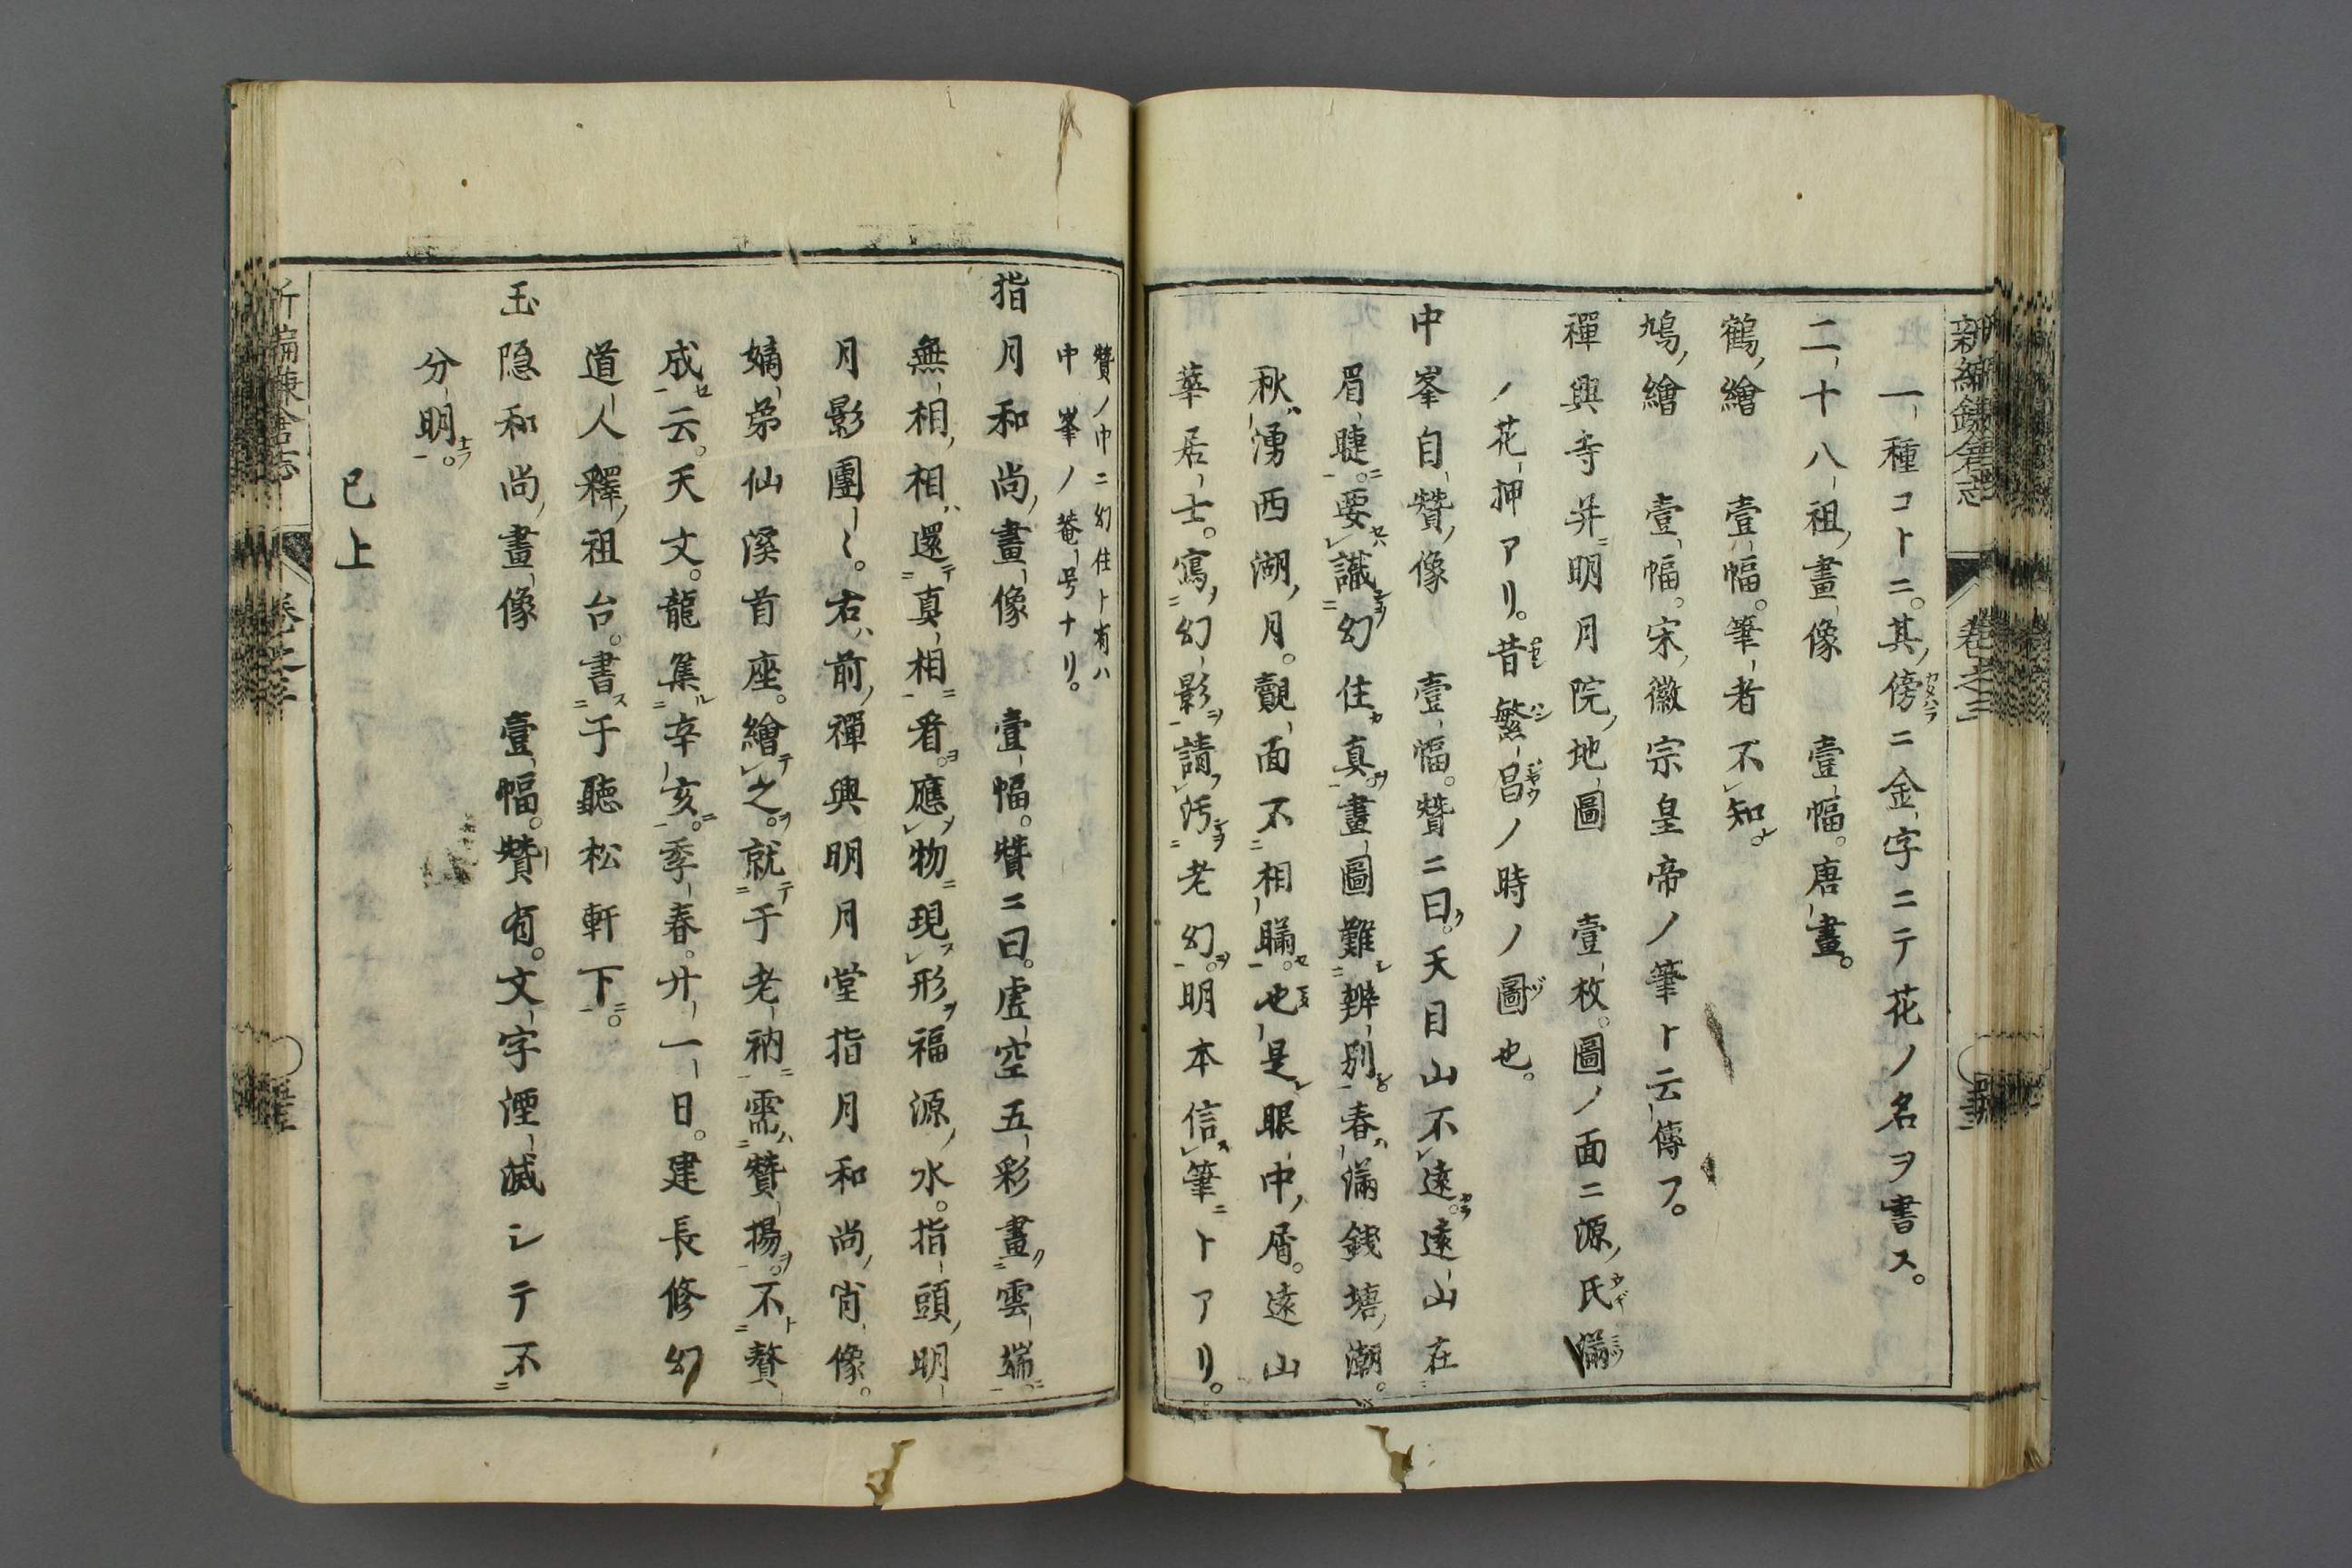 新編鎌倉志 卷之三
一種コトニ。其傍ニ金字ニテ花ノ名ヲ書ス。
二十八祖畫像 壹幅。唐畫。
鶴繪 壹幅。筆者不知。
鳩繪 壹幅。宋徽宗皇帝ノ筆ト云傳フ。
禪興寺并明月院地圖 壹枚。圖ノ面ニ源氏滿
ノ花押アリ。昔繁昌ノ時ノ圖也。
中峯自贊像 壹幅。贊ニ曰。天目山不遠遠山在
眉睫。要識幻住真畫圖難辨別。春滿錢塘潮。
秋湧西湖月。覿面不相瞞。也是眼中屑。遠山
華居士。寫幻影請汚老幻。明本信筆トアリ。
贊ノ中ニ幻住ト有ハ
中峯ノ菴号ナリ。
指月和尚畫像 壹幅。贊ニ曰。虛空五彩畫雲端
無相相還真相看。應物現形福源水。指頭明
月影團〱。右前禪興明月堂指月和尚肖像。
嫡弟仙溪首座。繪之。就于老衲需贊揚。不贅
成云。天文龍集辛亥。季春。廾一日。建長修幻
道人釋祖台。書于聽松軒下。
玉隐和尚畫像 壹幅。贊有。文字湮滅シテ不
分明。
已上
卷之三